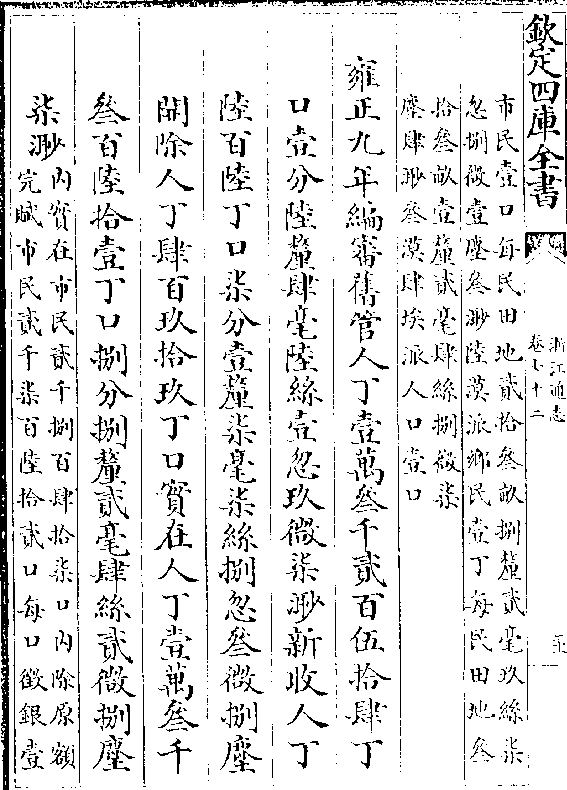 欽定四庫全書
浙江通志
卷七十二
市民壹口每民田地貳拾叁畝捌釐貳毫玖絲柒
忽捌微壹塵叁渺陸漠派鄉民壹丁每民田地叁
拾叁畝壹釐貳毫肆絲捌微柒
塵肆渺叁漠肆埃派人口壹口
雍正九年編審舊管人丁壹萬叁千貳百伍拾肆丁
口壹分陸釐肆毫陸絲壹忽玖微柒渺新收人丁
陸百陸丁口柒分壹釐柒毫柒絲捌忽叁微捌塵
開除人丁肆百玖拾玖丁口實在人丁壹萬叁千
叁百陸拾壹丁口捌分捌釐貳毫肆絲貳微捌塵
柒渺內實在市民貳千捌百肆拾柒口內除原額
完賦市民貳千柒百陸拾貳口每口徵銀壹